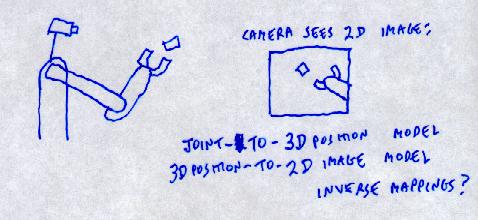 CAMERA SEES 2D IMAGE:
JOINT-TO-3D POSITION MODEL
3D POSITION-TO-2D IMAGE MODEL
INVERSE MAPPINGS?